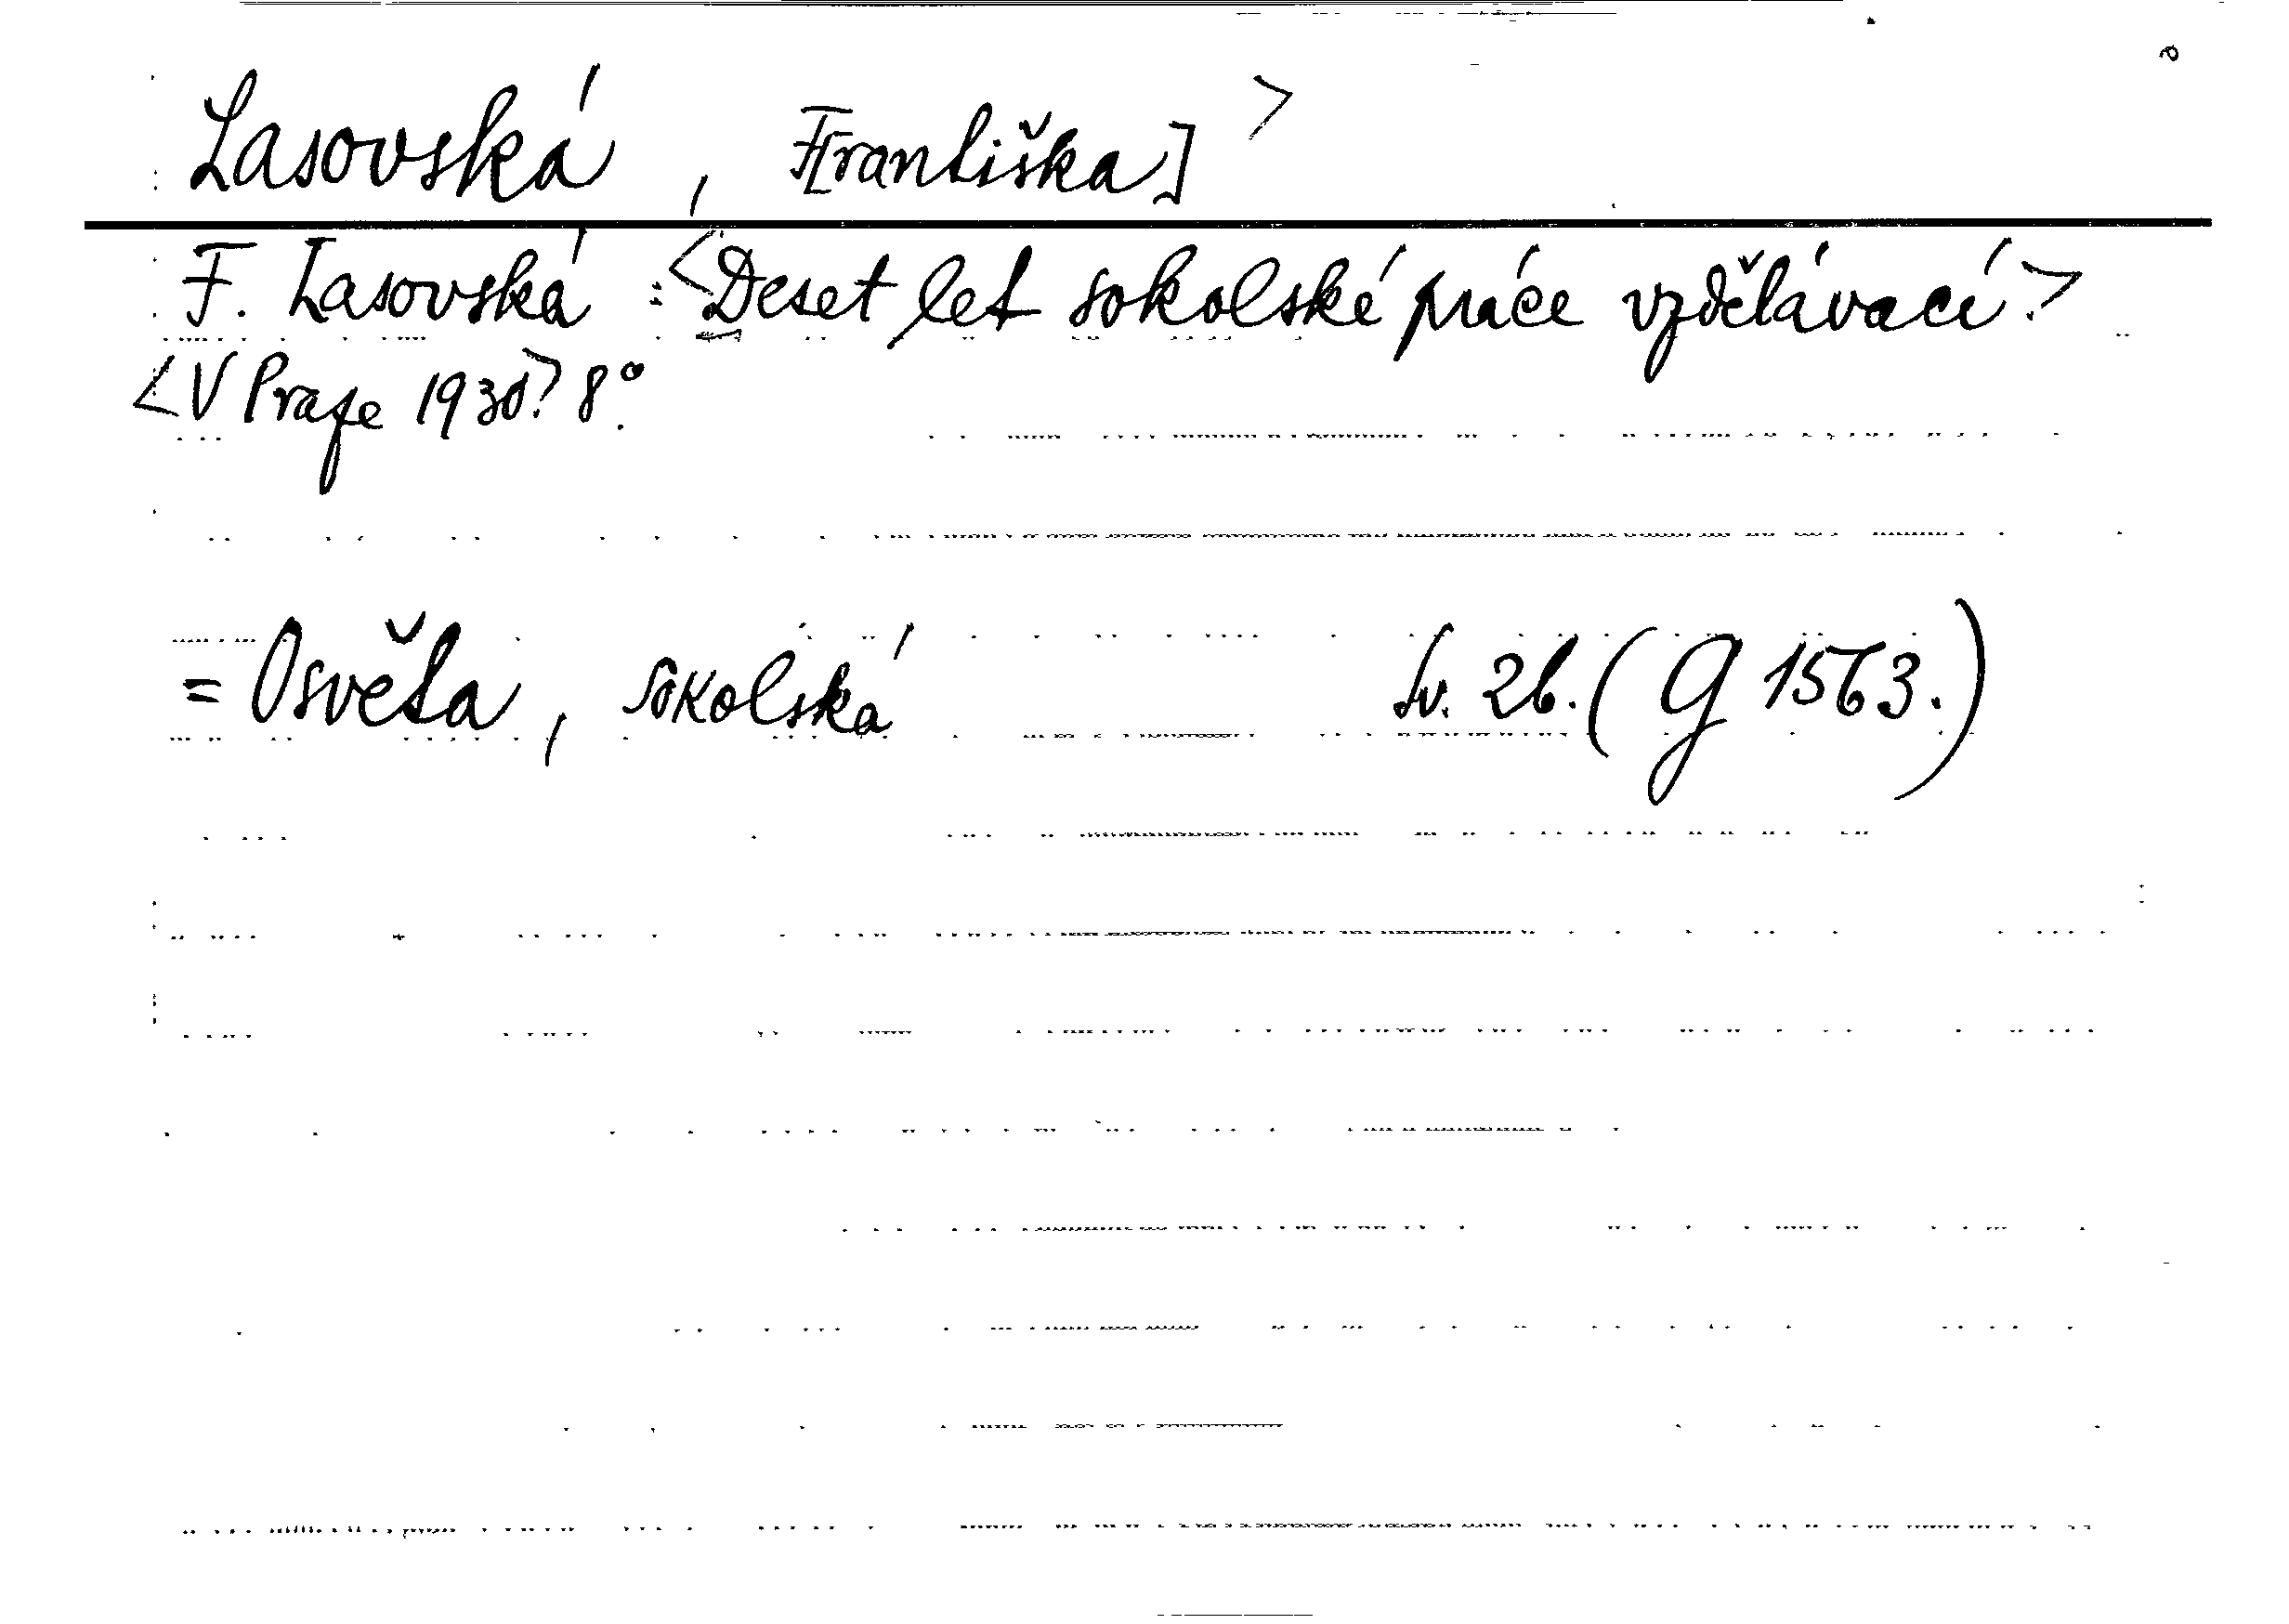 Lasovská, F[rantiška] >
F. Lasovská: <Deset let sokolské práce vzdělávací.>
<V Praze 1930.> 8°.
= Osvěta, sokolská Sv. 26. (G 1563.)